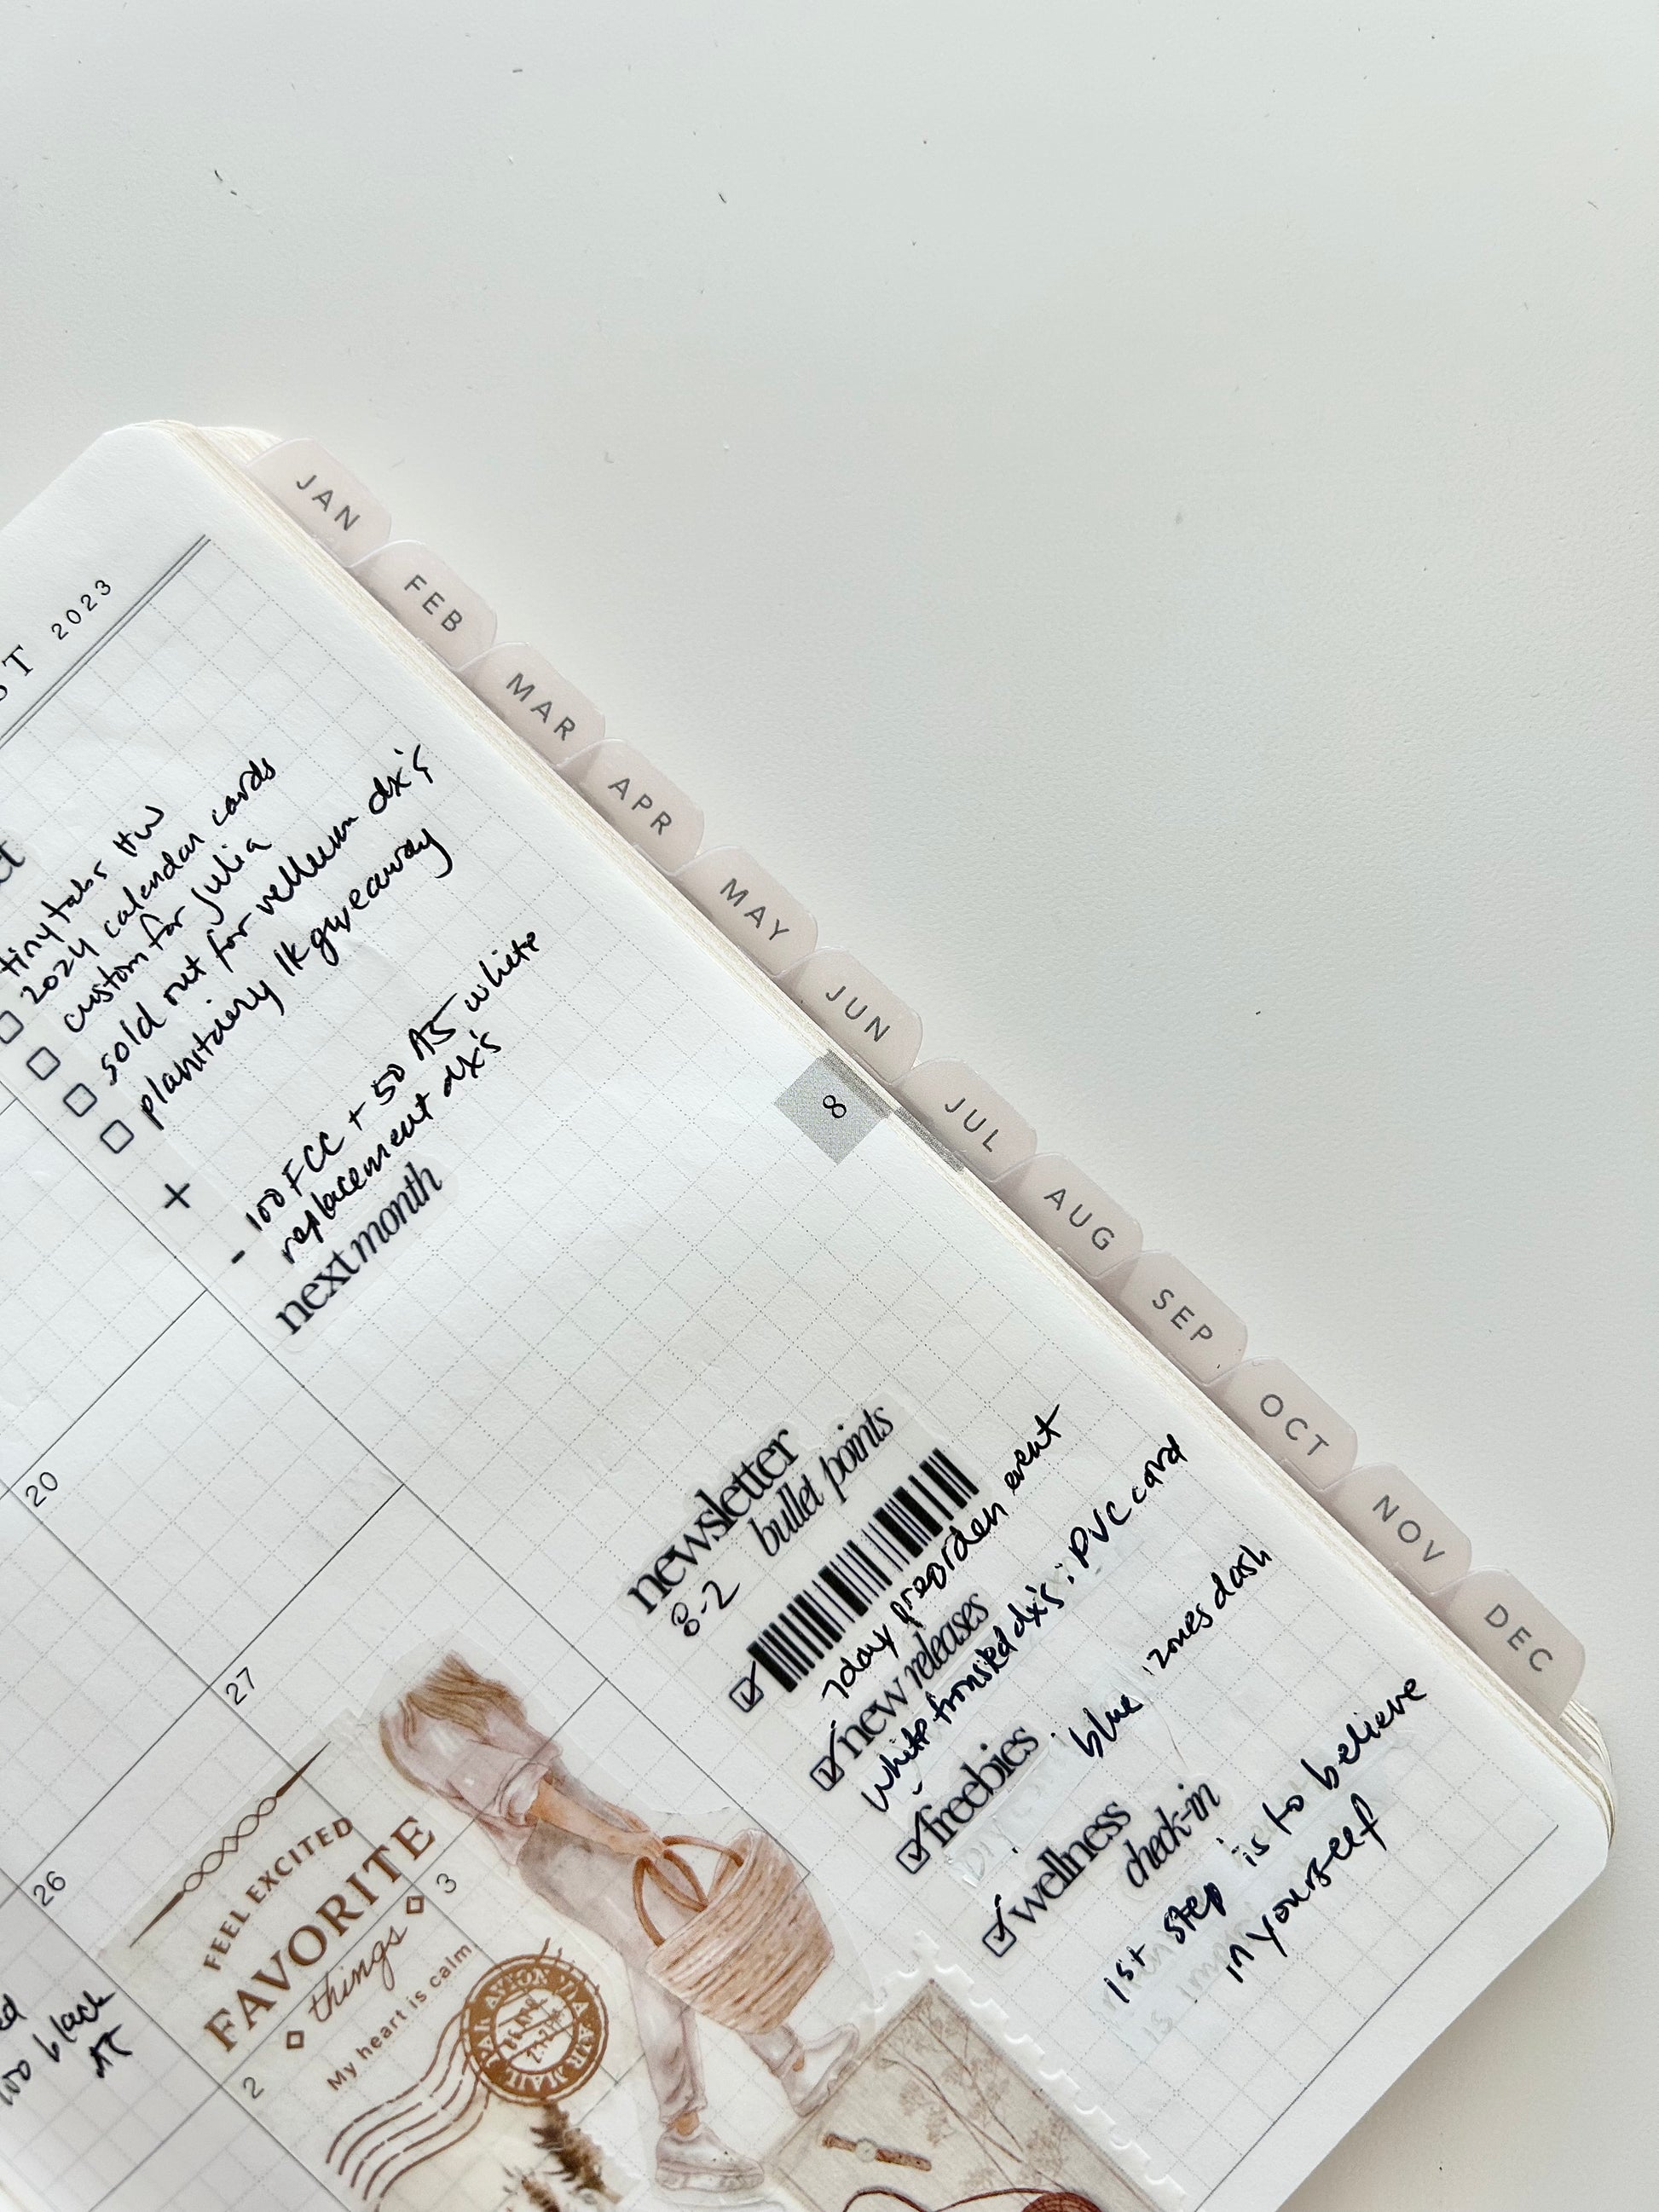 2023
JAN
FEB
MAR
APR
MAY
JUN
JUL
AUG
SEP
OCT
NOV
DEC
tiny tabs HW
2024 calendar cards
custom for Julia
sold out for vellum dx's
1k giveaway
+
- 100 FCC + 50 A5 white
replacement dx's
next month
8
newsletter
bullet points
8-2
7day preorder event
new releases
white frosted dx's : PVC card
freebies : blue zones dash
wellness
check-in
1st step is to believe
in yourself
20
27
26
3
2
FEEL EXCITED
FAVORITE
things
My heart is calm
PAR AVION
AIR MAIL
black